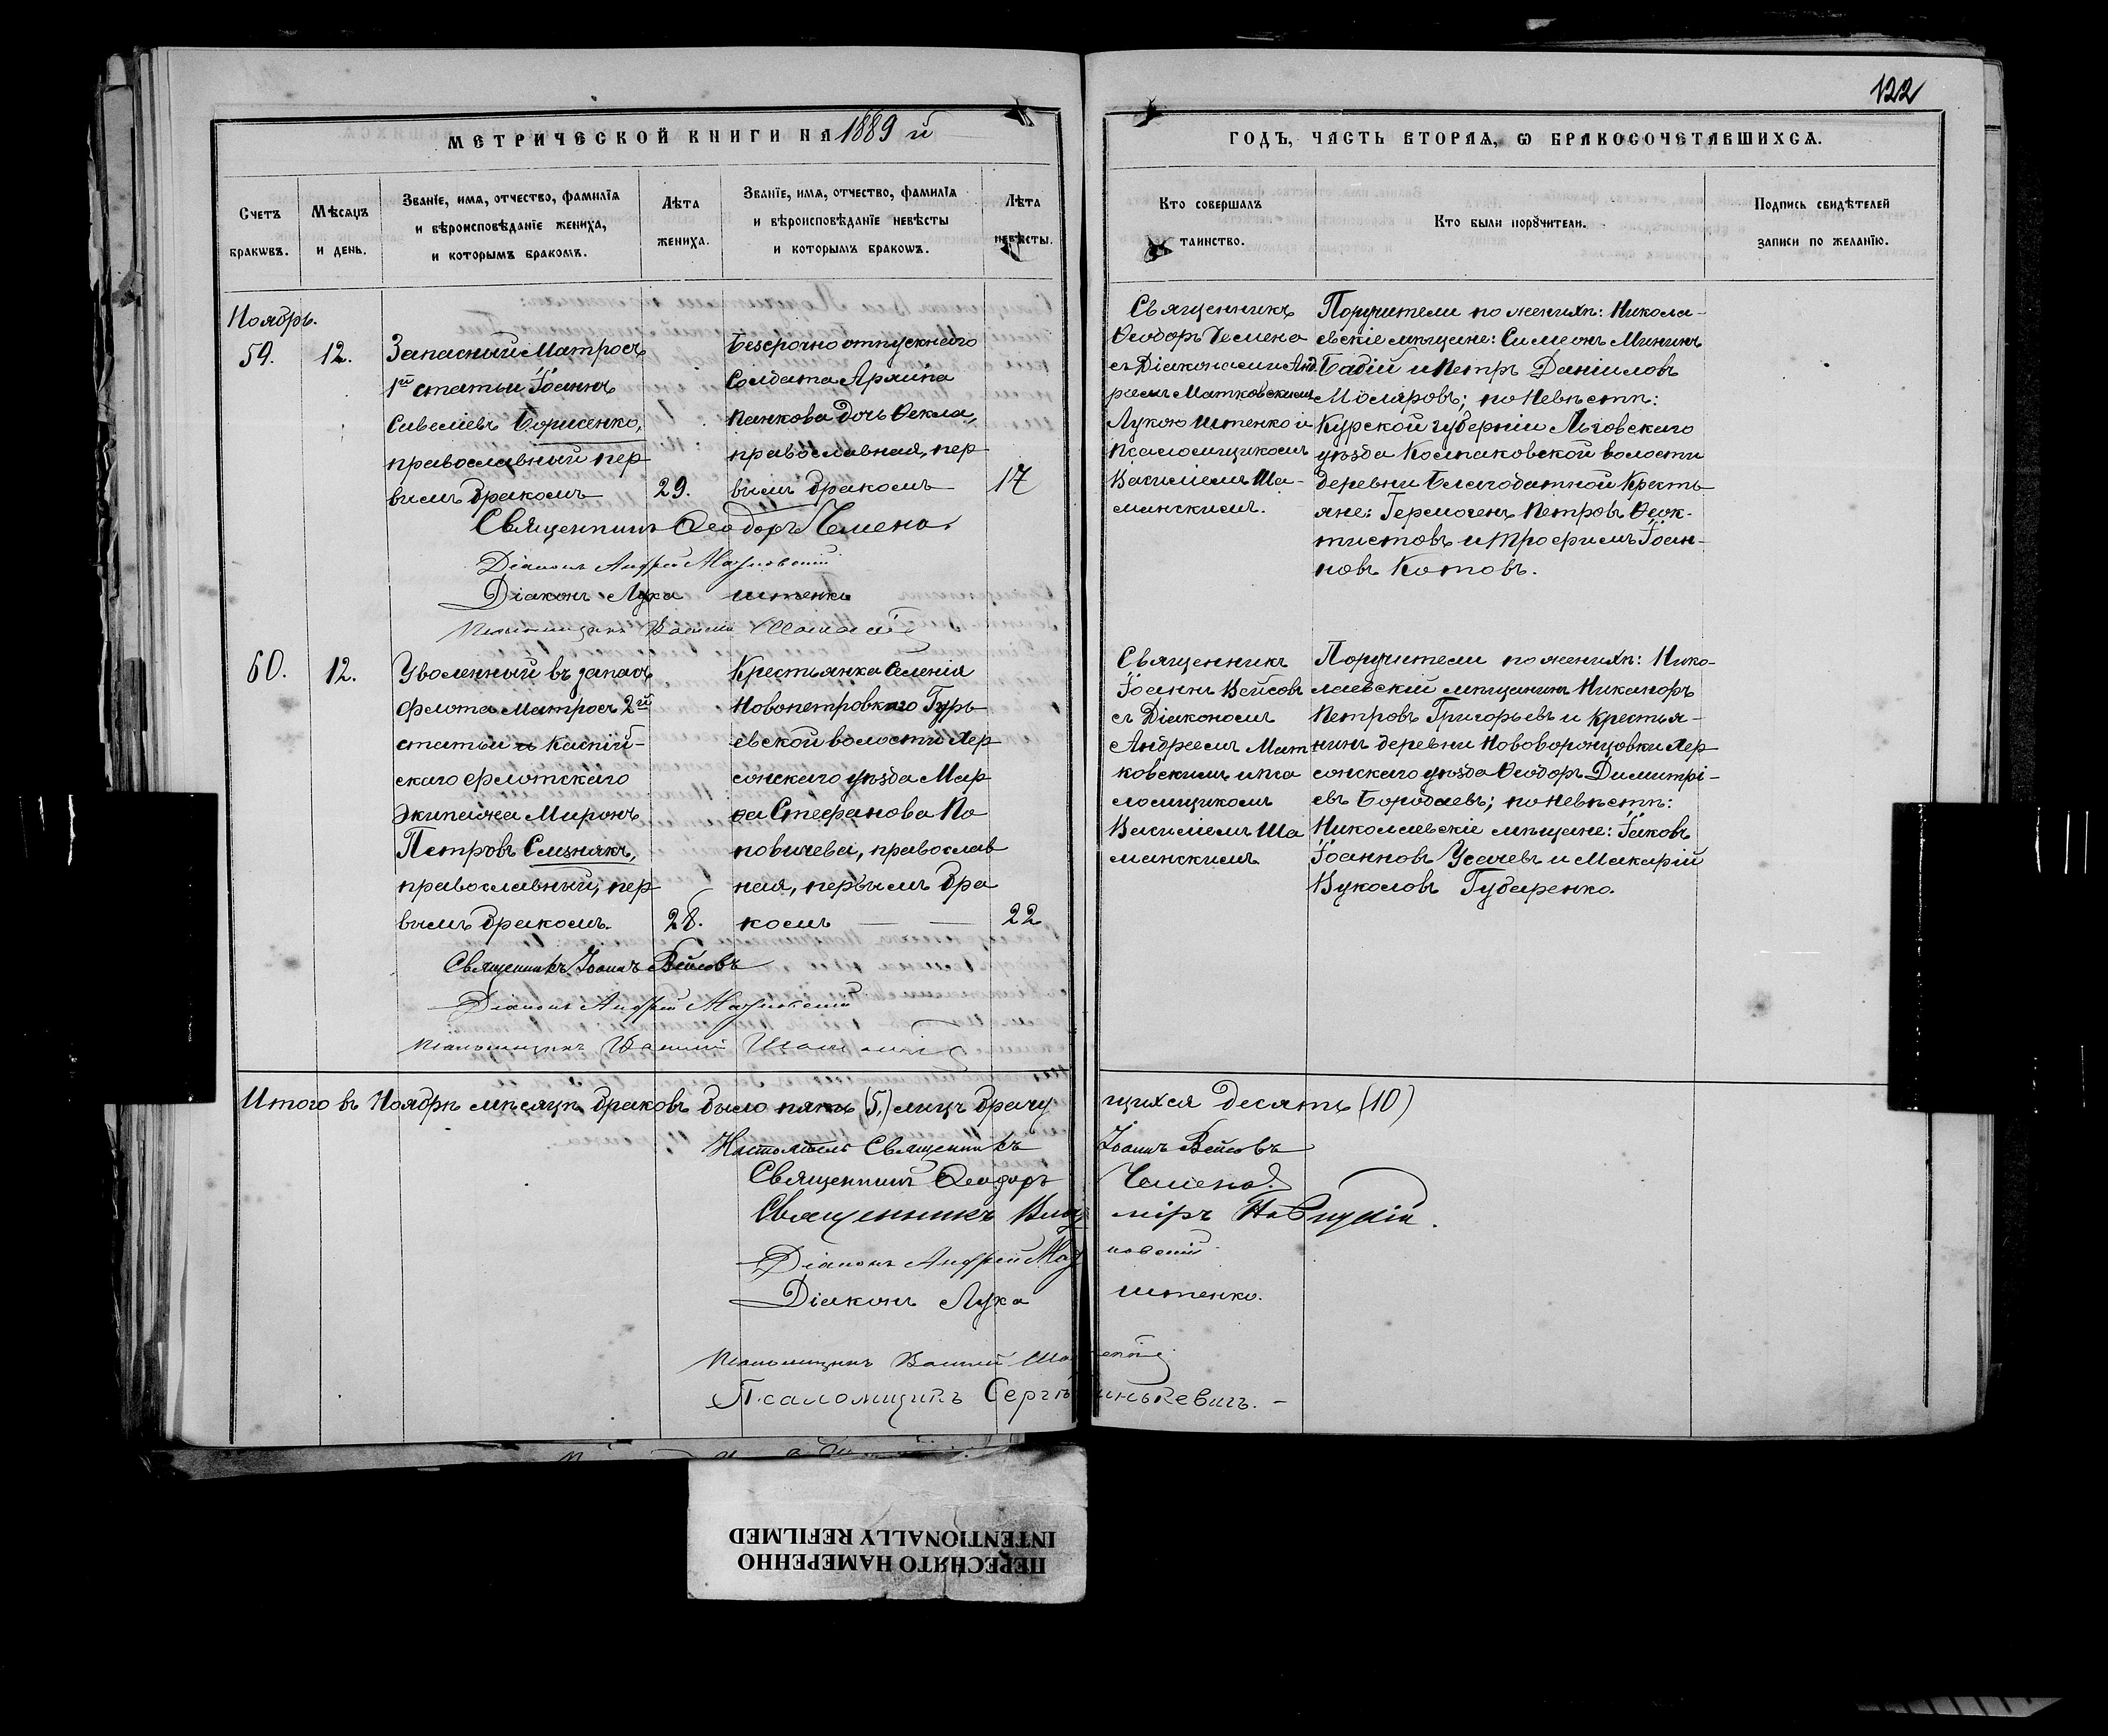 122
МЕТРИЧЕСКОЙ КНИГИ НА 1889 й
ГОДЪ, ЧАСТЬ ВТОРАѦ, Ѡ БРАКОСОЧЕТАВШИХСѦ.
Счетъ браковъ.
Мѣсяцъ и день.
Званїе, имѧ, отчество, фамилїѧ
и вѣроисповѣданїе жениха,
и которымъ бракомъ.
Лѣта жениха.
Званїе, имѧ, отчество, фамилїѧ
и вѣроисповѣданїе невѣсты
и которымъ бракомъ.
Лѣта невѣсты.
Кто совершалъ таинство.
Кто были порꙋчители.
Подпись свидѣтелей
записи по желанїю.
Ноябрь.
59. 12.
Запасный Матросъ
1й статьи Іоаннъ
Савеліевъ Борисенко,
православный пер
вымъ бракомъ
29.
Безсрочно отпускнаго
Солдата Архипа
Панкова дочь Ѳекла,
православная, пер
вымъ бракомъ
17
Священникъ
Ѳеодоръ Чемена
съ Діаконами Анд
реемъ Матковскимъ
Лукою Штенко и
Псаломщикомъ
Василіемъ Ша-
манскимъ.
Поручители по женихѣ: Никола-
евскіе мѣщане: Симеонъ Мининъ
Бабій и Петръ Даніиловъ
Моляровъ; по Невѣстѣ:
Курской губерніи Льговскаго
уѣзда Колпаковской волости
деревни Благодатной Кресть
яне: Гермогенъ Петровъ Ѳеок-
тистовъ и Трофимъ Іоан-
новъ Котовъ.
Священникъ Ѳеодоръ Чемена.
Діаконъ Андрей Матковскій
Діаконъ Лука Штенко
Псаломщикъ Василій Шаманскій
60. 12.
Уволенный въ запасъ
флота Матросъ 2й
статьи Каспій-
скаго флотскаго
Экипажа Миронъ
Петровъ Слизнякъ,
православный, пер
вымъ бракомъ.
28.
Крестьянка Селенія
Новопетровкаго Гурь
евской волости Хер
сонскаго уѣзда Мар
ѳа Стефанова По
повичева, православ
ная, первымъ бра
комъ
22
Священникъ
Іоаннъ Вейсовъ
съ Діакономъ
Андреемъ Мат
ковскимъ и пса
ломщикомъ
Василіемъ Ша
манскимъ
Поручители по женихѣ: Нико-
лаевскій мѣщанинъ Никаноръ
Петровъ Григорьевъ и крестья-
нинъ деревни Нововоронцовки Хер
сонскаго уѣзда Ѳеодоръ Димитрі-
евъ Бородаевъ; по Невѣстѣ:
Николаевскіе мѣщане: Іаковъ
Іоанновъ Усачевъ и Макарій
Вуколовъ Губаренко.
Священникъ Іоаннъ Вейсовъ
Діаконъ Андрей Матковскій
Псаломщикъ Василій Шаманскій
Итого въ Ноябрѣ мѣсяцѣ браковъ было пять (5.) лицъ брачущихся десять (10)
Настоятель Священникъ Іоаннъ Вейсовъ
Священникъ Ѳеодоръ Чемена
Священникъ
Діаконъ Андрей Матковскій
Діаконъ Лука Штенко.
Псаломщикъ Василій Шаманскій
Псаломщикъ
ПЕРЕСНЯТО НАМЕРЕННО
INTENTIONALLY REFILMED